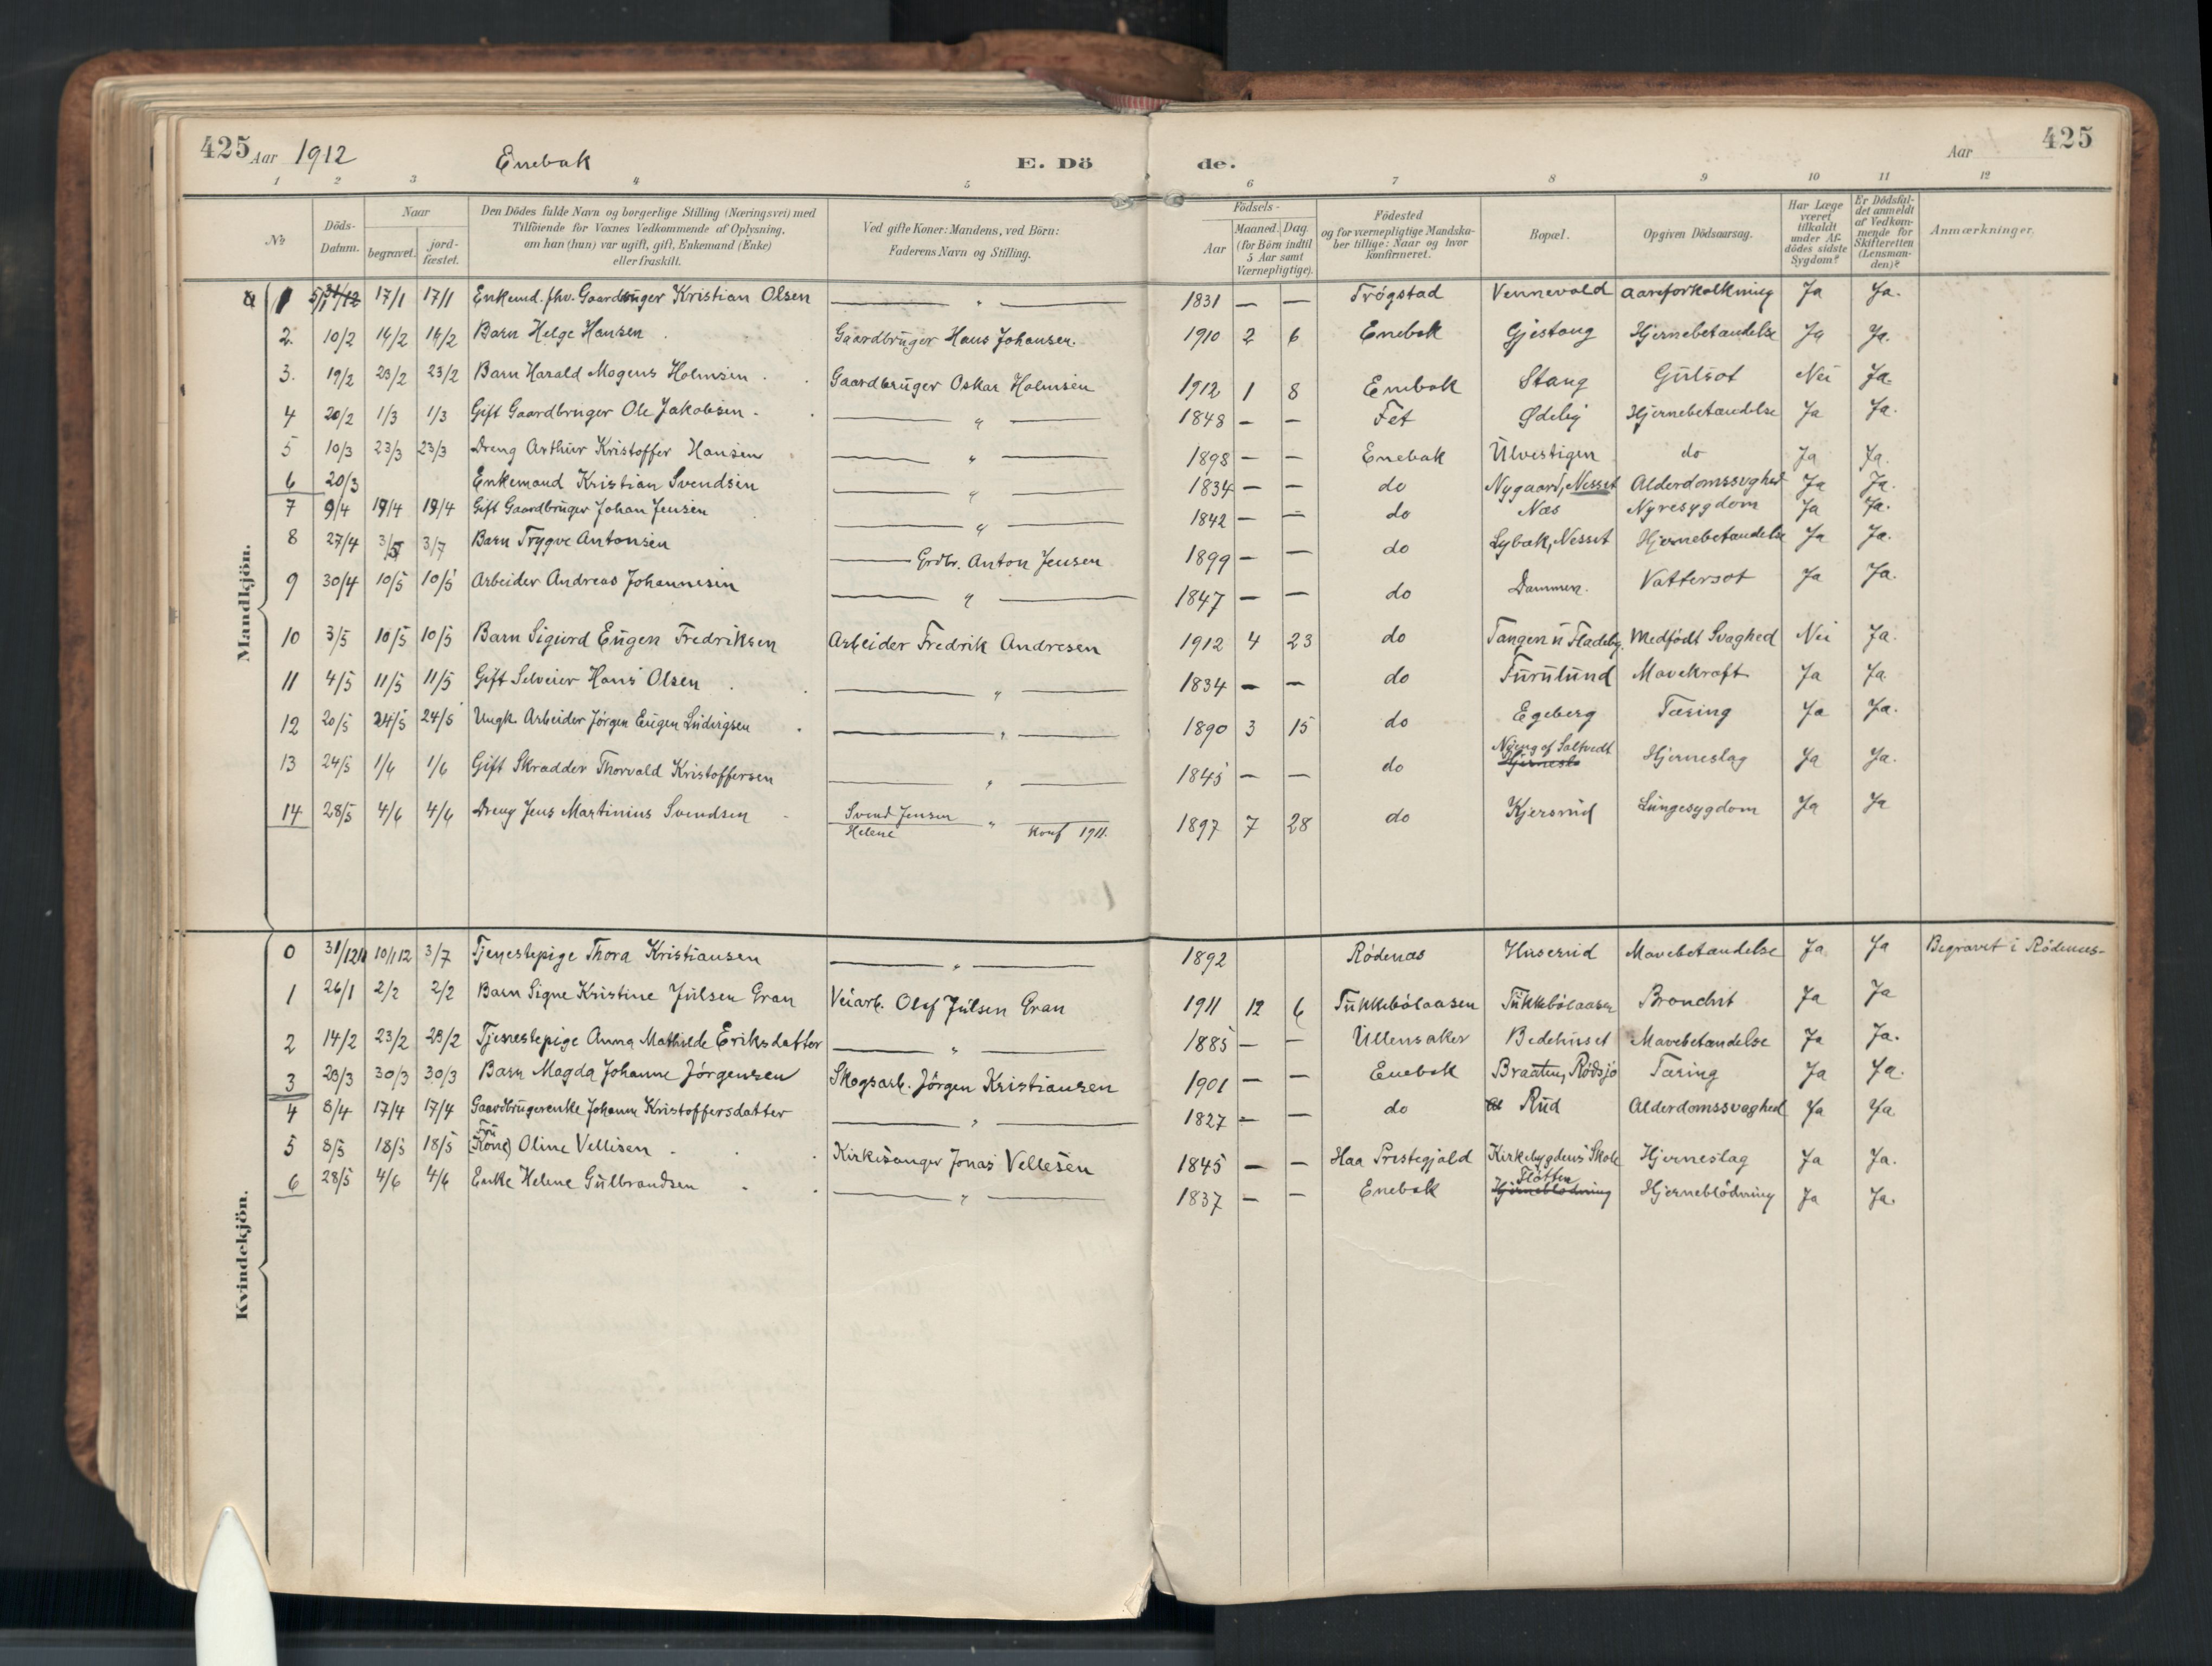 425 Aar 1912 Enebak E. Dö de. Aar 425
1 2 3 4 5 6 7 8 9 10 11 12
No
Döds-Datum.
Naar
begravet.
jord-fæstet.
Den Dödes fulde Navn og borgerlige Stilling (Næringsvei) med
Tilföiende for Voxnes Vedkommende af Oplysning,
om han (hun) var ugift, gift, Enkemand (Enke)
eller fraskilt.
Ved gifte Koner: Mandens, ved Börn:
Faderens Navn og Stilling.
Födsels-
Aar
Maaned. Dag
(for Börn indtil
5 Aar samt
Værnepligtige).
Födested
og for værnepligtige Mandska-
ber tillige: Naar og hvor
konfirmeret.
Bopæl.
Opgiven Dödsaarsag.
Har Læge
været
tilkaldt
under Af-
dödes sidste
Sygdom?
Er Dödsfal-
det anmeldt
af Vedkom-
mende for
Skifteretten
(Lensman-
den)?
Anmærkninger.
Mandkjön.
1 5/1 31/12 17/1 17/1 Enkemd. fhv. Gaardbruger Kristian Olsen — " — 1831 — — Trögstad Vennevold Aareforkalkning Ja Ja.
2. 10/2 14/2 14/2 Barn Helge Hansen Gaardbruger Hans Johansen. 1910 2 6 Enebak Gjestang Hjernebetændelse Ja Ja.
3. 19/2 23/2 23/2 Barn Harald Mogens Holmsen Gaardbruger Oskar Holmsen 1912 1 8 Enebak Stang Gulsot Nei Ja.
4 20/2 1/3 1/3 Gift Gaardbruger Ole Jakobsen — " — 1848 — — Fet Ødeby Hjernebetændelse Ja Ja.
5 10/3 23/3 23/3 Dreng Arthur Kristoffer Hansen — " — 1898 — — Enebak Ulvestigen do Ja Ja.
6 20/3 Enkemand Kristian Svendsen — " — 1834 — — do Nygaard, Nesset Alderdomssvghed Ja Ja.
7 9/4 19/4 19/4 Gift Gaardbruger Johan Jensen — " — 1842 — — do Næs Nyresygdom Ja Ja.
8 27/4 3/5 3/7 Barn Trygve Antonsen — Grdbr. Anton Jensen 1899 — — do Lybak, Nesset Hjernebetændelse Ja Ja.
9 30/4 10/5 10/5 Arbeider Andreas Johannesen — " — 1847 — — do Dammen. Vattersot Ja Ja.
10 3/5 10/5 10/5 Barn Sigurd Eugen Fredriksen Arbeider Fredrik Andresen 1912 4 23 do Tangen u Fladeby. Medfödt Svaghed Nei Ja.
11 4/5 11/5 11/5 Gift Selveier Hans Olsen — " — 1834 — — do Furulund Mavekræft Ja Ja.
12 20/5 24/5 24/5 Ungk. Arbeider Jörgen Eugen Ludvigsen — " — 1890 3 15 do Egeberg Tæring Ja Ja.
Nöeng af Saltvedt
13 24/5 1/6 1/6 Gift Skrædder Thorvald Kristoffersen — " — 1845 — — do Hjernesla Hjerneslag Ja Ja.
14 28/5 4/6 4/6 Dreng Jens Martinius Svendsen Svend Jensen " — 1897 7 28 do Kjersrud Lungesygdom Ja Ja
Helene Konf 1911.
Kvindekjön.
0 31/1211 10/1 12 3/7 Tjenestepige Thora Kristiansen — " — 1892 Rödenæs Huserud Mavebetændelse Ja Ja Begravet i Rödenæs-
1 26/1 2/2 2/2 Barn Signe Kristine Julsen Gran Veiarb. Olef Julsen Gran 1911 12 6 Tukkebölaasen Tukkebölaasen Bronchit Ja Ja
2 14/2 23/2 23/2 Tjenestepige Anna Mathilde Eriksdatter — " — 1885 — — Ullensaker Bedehuset Mavebetændelse Ja Ja.
3 23/3 30/3 30/3 Barn Magda Johanne Jörgensen Skogsarb. Jörgen Kristiansen 1901 — — Enebak Braaten, Rödsjö Tæring Ja Ja.
4 8/4 17/4 17/4 Gaardbrugerenke Johanne Kristoffersdatter — " — 1827 — — do Rud Alderdomssvaghed Ja Ja
Fru
5 8/5 18/5 18/5 (Kone) Oline Vellesen Kirkesanger Jonas Vellesen 1845 — — Haa Prestegjæld Kirkebygdens Skole Hjerneslag Ja Ja.
Flötten
6 28/5 4/6 4/6 Enke Helene Gulbrandsen — " — 1837 — — Enebak Hjerneblödning Hjerneblödning Ja Ja.